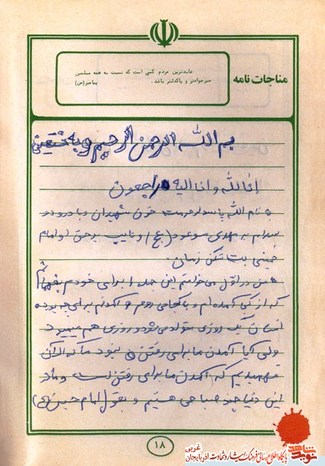 مناجات نامه
عابدترین مردم کسی است که نسبت به همه مسلمین
خیرخواه‌تر و پاکدلتر باشد. پیامبر(ص)
بسم الله الرحمن الرحیم و به نستعین
انا لله و انا الیه راجعون
به نام الله پاسدار حرمت خون شهیدان و با درود و
سلام به مهدی موعود (عج) و نایب برحق او امام
خمینی بت شکن زمان.
من در اول می‌خواهم این جمله را برای خودم بفهمانم
که از کی آمده‌ام و به کجا می‌روم و آمدنم برای چه بوده
انسان یک روزی متولد می‌شود و روزی هم میمیرد
ولی کیا آمدن ما برای رفتن نبود ما که الان
فهمیدیم که آمدن ما برای رفتن است و ما در
این دنیا چند صباحی هستیم و بقول امام حسین (ع)
۱۸
نوید شاهد
پایگاه اطلاع رسانی فرهنگ ایثار و شهادت آذربایجان غربی